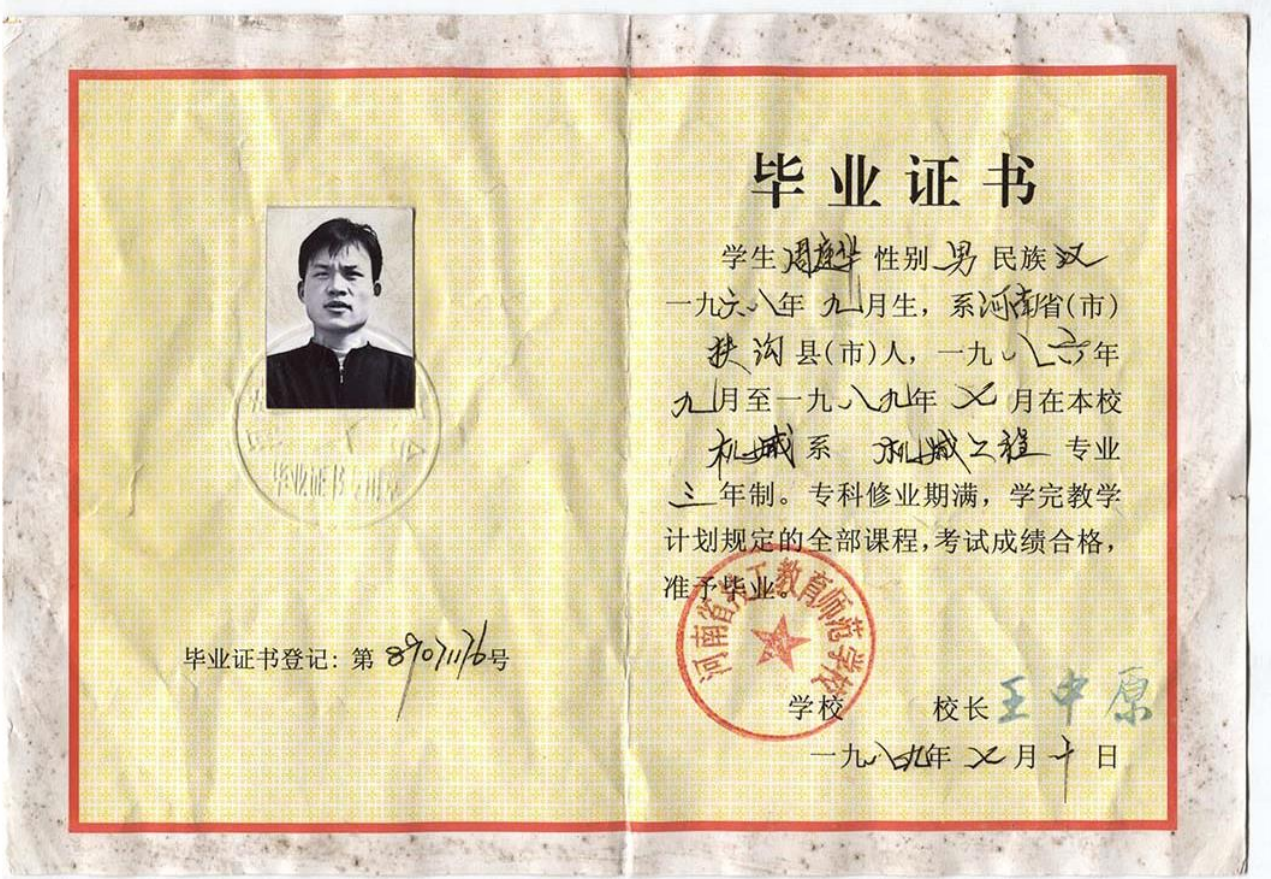 毕业证书登记：第8907176号
毕业证书专用章
毕业证书
学生周建华性别男民族汉
一九六八年九月生，系河南省(市)
扶沟县(市)人，一九八六年
九月至一九八九年七月在本校
机械系 机械工程专业
三年制。专科修业期满，学完教学
计划规定的全部课程，考试成绩合格，
准予毕业。
河南省技工教育师范学校
学校 校长王中原
一九八九年七月十日